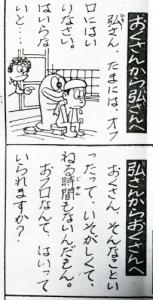 おくさんから弘さんへ
弘さん、たまには、オフ
ロにはい
りなさい。
はいらな
いと…
弘さんからおくさんへ
おくさん、そんなことい
ったって、いそがしくて、
ねる時間もないんだもん。
おフロなんて、はいって
いられますか?